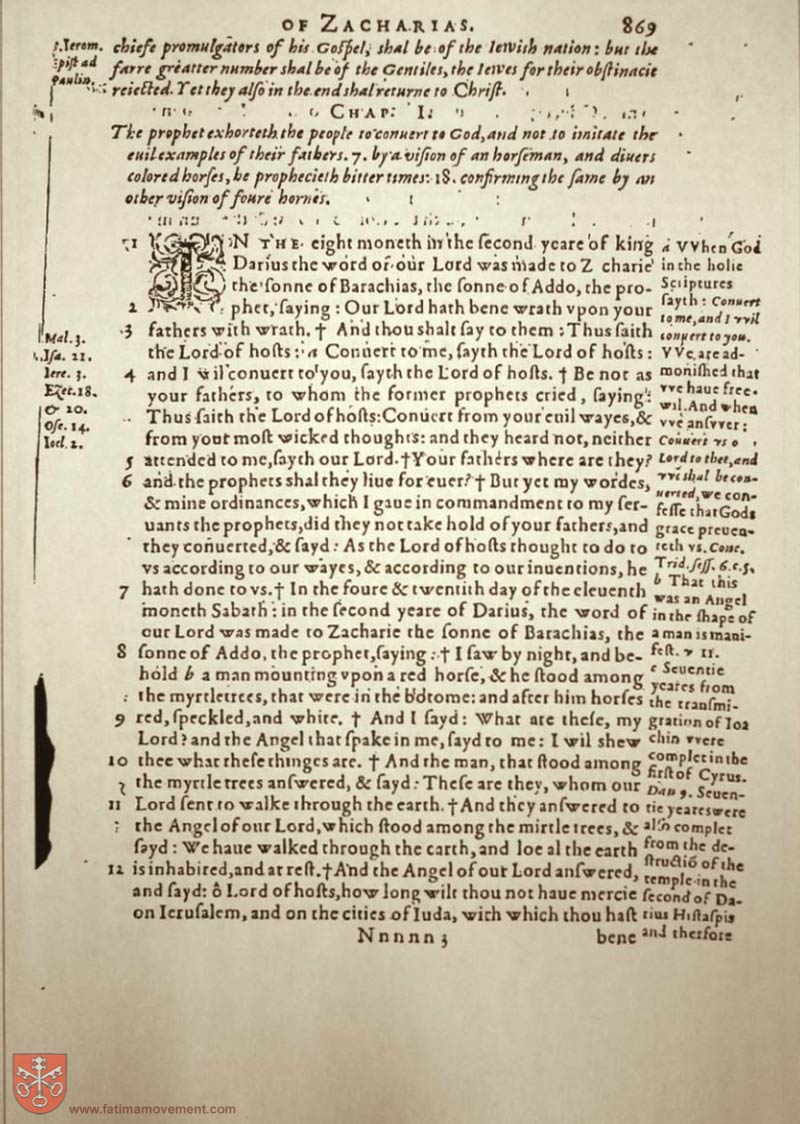 OF ZACHARIAS. 869
chiefe promulgators of his Gospel, shal be of the Iewish nation: but the
farre greatter number shal be of the Gentiles, the Iewes for their obstinacie
reiected. Yet they also in the end shal returne to Christ.
S. Ierom.
epist ad
paulin.
CHAP. I.
The prophet exhorteth the people to conuert to God, and not to imitate the
euil examples of their fathers. 7. by a vision of an horseman, and diuers
colored horses, he prophecieth bitter times: 18. confirming the same by an
other vision of foure hornes.
1 IN THE eight moneth in the second yeare of king
Darius the word of our Lord was made to Zcharie
the sonne of Barachias, the sonne of Addo, the pro-
2 phet, saying: Our Lord hath bene wrath vpon your
3 fathers with wrath. † And thou shalt say to them: Thus saith
the Lord of hosts: a Conuert to me, sayth the Lord of hosts:
4 and I wil conuert to you, sayth the Lord of hosts. † Be not as
your fathers, to whom the former prophets cried, saying:
Thus saith the Lord of hosts: Conuert from your euil wayes, &
from yout most wicked thoughts: and they heard not, neither
5 attended to me, sayth our Lord. † Your fathers where are they?
6 and the prophets shal they liue for euer? † But yet my wordes,
& mine ordinances, which I gaue in commandment to my ser-
uants the prophets, did they not take hold of your fathers, and
they conuerted, & sayd: As the Lord of hosts thought to do to
vs according to our wayes, & according to our inuentions, he
7 hath done to vs. † In the foure & twentith day of the eleuenth
moneth Sabath: in the second yeare of Darius, the word of
our Lord was made to Zacharie the sonne of Barachias, the
8 sonne of Addo, the prophet, saying: † I saw by night, and be-
hold b a man mounting vpon a red horse, & he stood among
the myrtletrees, that were in the bottome: and after him horses
9 red, speckled, and white. † And I sayd: What are these, my
Lord? and the Angel that spake in me, sayd to me: I wil shew
10 thee what these thinges are. † And the man, that stood among
the myrtle trees answered, & sayd: These are they, whom our
11 Lord sent to walke through the earth. † And they answered to
the Angel of our Lord, which stood among the mirtle trees, &
sayd: We haue walked through the earth, and loe al the earth
12 is inhabired, and at rest. † And the Angel of out Lord answered,
and sayd: ô Lord of hosts, how long wilt thou not haue mercie
on Ierusalem, and on the cities of Iuda, with which thou hast
Nnnnn 3 bene
Mal. 3.
Isa. 21.
Iere. 3.
Ezec. 18.
& 20.
Ose. 14.
Ioel. 2.
a VVhen God
in the holie
Scriptures
sayth: Conuert
to me, and I vvil
conuert to you.
VVe are ad-
monished that
vve haue free-
wil. And when
vve ansvver:
Conuert vs o
Lord to thee, and
vve shal be con-
uerted, we con-
fesse that Gods
grace preuen-
teth vs. Conc.
Trid. sess. 6. c. 5.
b That this
was an Angel
in the shape of
a man is mani-
fest. v 11.
c Seuentie
yeares from
the transmi-
gration of Ioa
chin vvere
complet in the
first of Cyrus.
Dan 9. Seuen-
tie yeares were
also complet
from the de-
structiō of the
temple in the
second of Da-
rius Histaspis
and therfore
www.fatimamovement.com